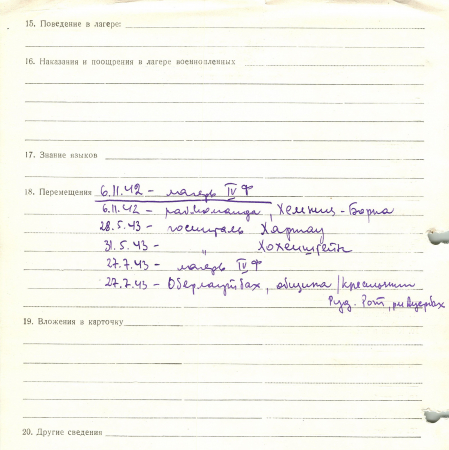 15. Поведение в лагере:
16. Наказания и поощрения в лагере военнопленных
17. Знание языков
18. Перемещения 6.11.42 – лагерь IV Ф
6.11.42 – рабкоманда, Хемниц-Борна
28.5.43 – госпиталь Хартау
31.5.43 – " Хохенштейн
27.7.43 – лагерь IV Ф
27.7.43 – Оберлаутбах, община /крестьянин
Руд. Рот, рн Ауербах
19. Вложения в карточку
20. Другие сведения